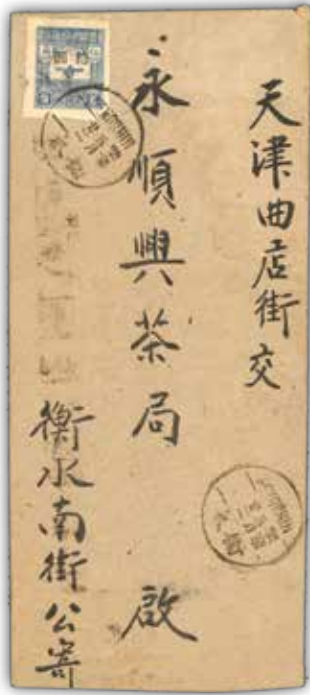 天津曲店街交
永順興茶局 啟
衡水南街公寄